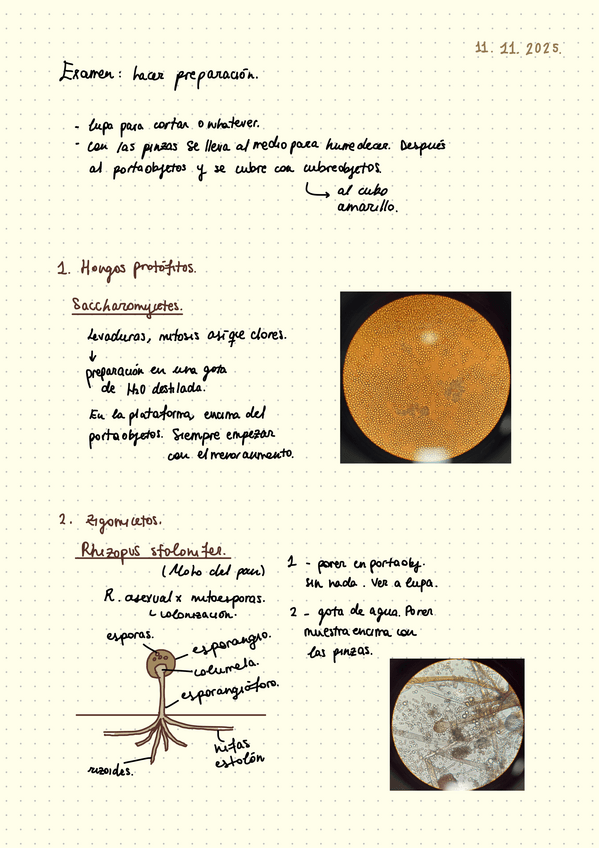 11. 11. 2025.
Examen: hacer preparación.
- lupa para cortar o whatever.
- con las pinzas se lleva al medio para humedecer. Después
al portaobjetos y se cubre con cubreobjetos.
al cubo
amarillo.
1. Hongos protófitos.
Saccharomycetes.
levaduras, mitosis así que clores.
preparación en una gota
de H2O destilada.
En la plataforma, encima del
portaobjetos. Siempre empezar
con el menor aumento.
2. Zigomicetos.
Rhizopus stolonifer.
(Moho del pan)
R. asexual x mitoesporas.
colonización.
1 - poner en portaobj.
sin nada. Ver a lupa.
2 - gota de agua. Poner
muestra encima con
las pinzas.
esporas.
esporangio.
columela.
esporangióforo.
hifas
estolón
rizoides.